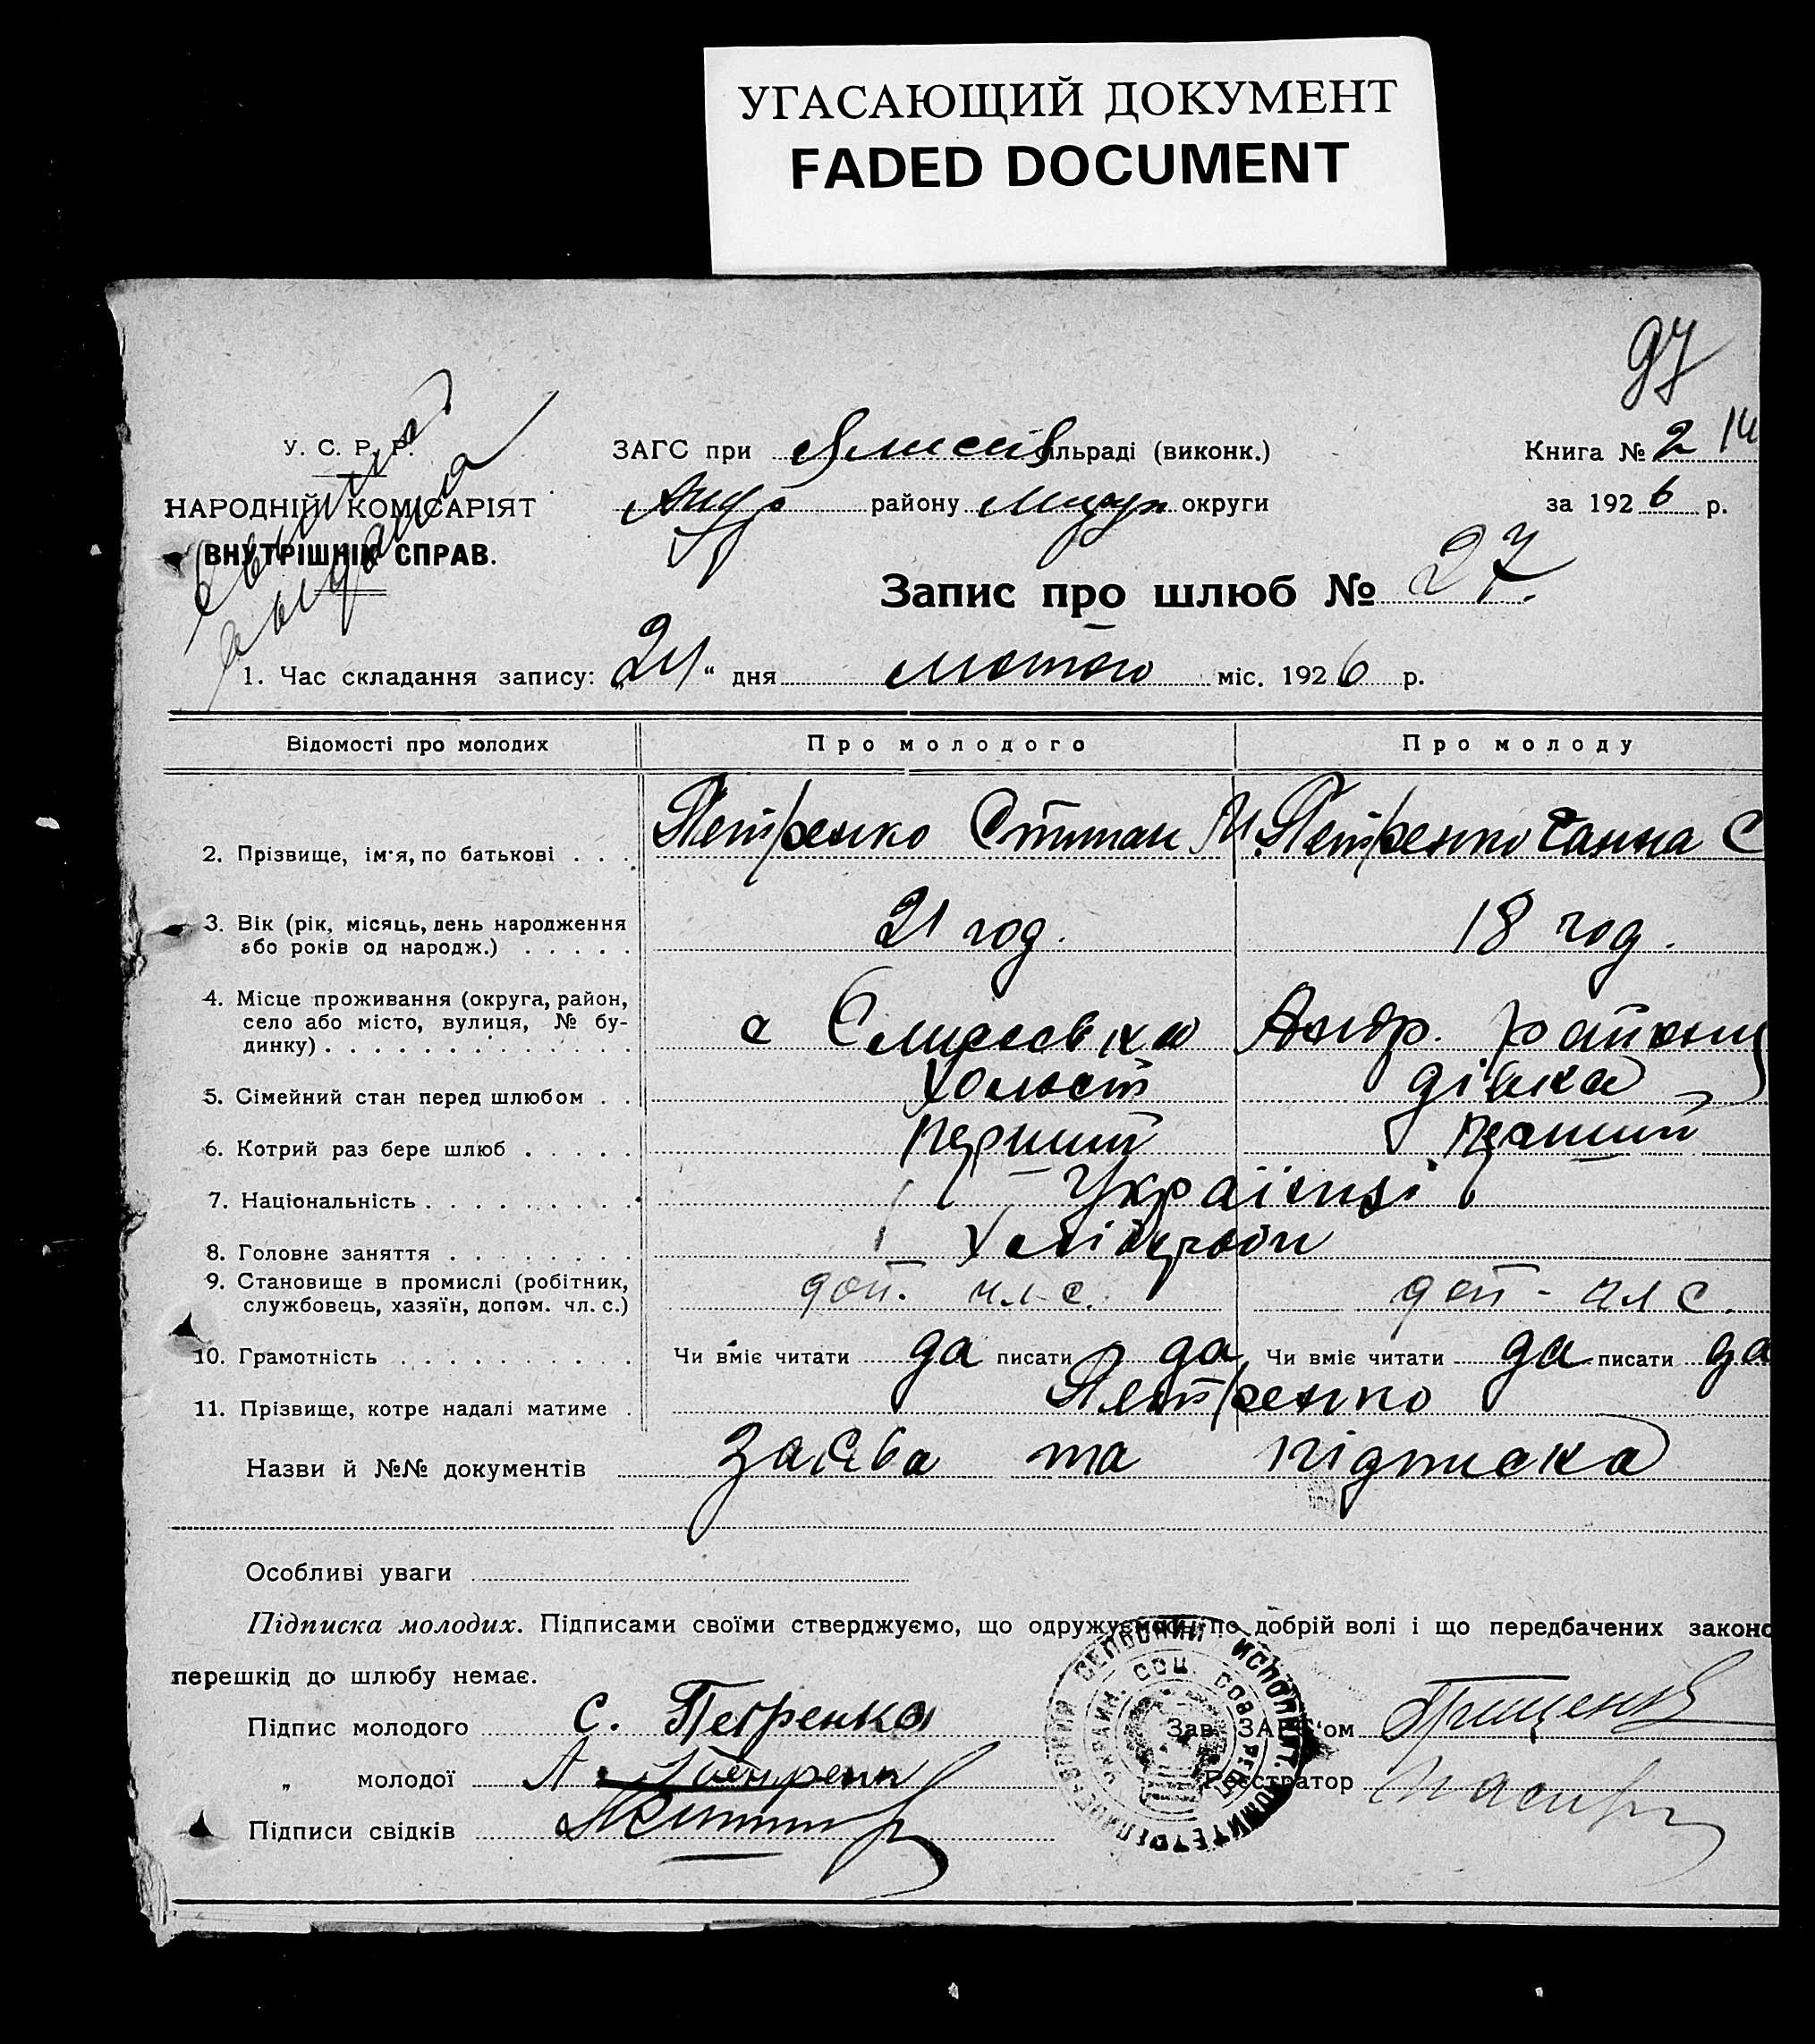 УГАСАЮЩИЙ ДОКУМЕНТ
FADED DOCUMENT
97
У. С. Р. Р.
ЗАГС при сільраді (виконк.)
Книга № 2 14
НАРОДНІЙ КОМІСАРІЯТ
Андр району округи
за 1926 р.
ВНУТРІШНІХ СПРАВ.
Запис про шлюб № 27.
1. Час складання запису: „24“ дня лютого міс. 1926 р.
Відомості про молодих Про молодого Про молоду
2. Прізвище, ім'я, по батькові . . . Петренко Степан М. Петренко Ганна С
3. Вік (рік, місяць, день народження
або років од народж.) . . . . . 21 год. 18 год.
4. Місце проживання (округа, район,
село або місто, вулиця, № бу-
динку) . . . . . . . . . . . . . с Єлисеевка Андр. району
5. Сімейний стан перед шлюбом . . Холост дівка
6. Котрий раз бере шлюб . . . . . перший перший
7. Національність . . . . . . . . . Українці
8. Головне заняття . . . . . . . . Хлібороби
9. Становище в промислі (робітник,
службовець, хазяїн, допом. чл. с.) доп. чл с. доп - чл с.
10. Грамотність . . . . . . . . . . . Чи вміє читати да писати да Чи вміє читати да писати да
11. Прізвище, котре надалі матиме . Петренко
Назви й №№ документів Заява та підписка
Особливі уваги
Підписка молодих. Підписами своїми стверджуємо, що одружуємось по добрій волі і що передбачених законо
перешкід до шлюбу немає.
Підпис молодого С. Петренко Зав. ЗАГС'ом Грищенко
„ молодої Реєстратор
Підписи свідків
СЕЛЬСКИЙ ИСПОЛНИТ. КОМИТЕТ
УКРАИН. СОЦ. СОВ. РЕСП.